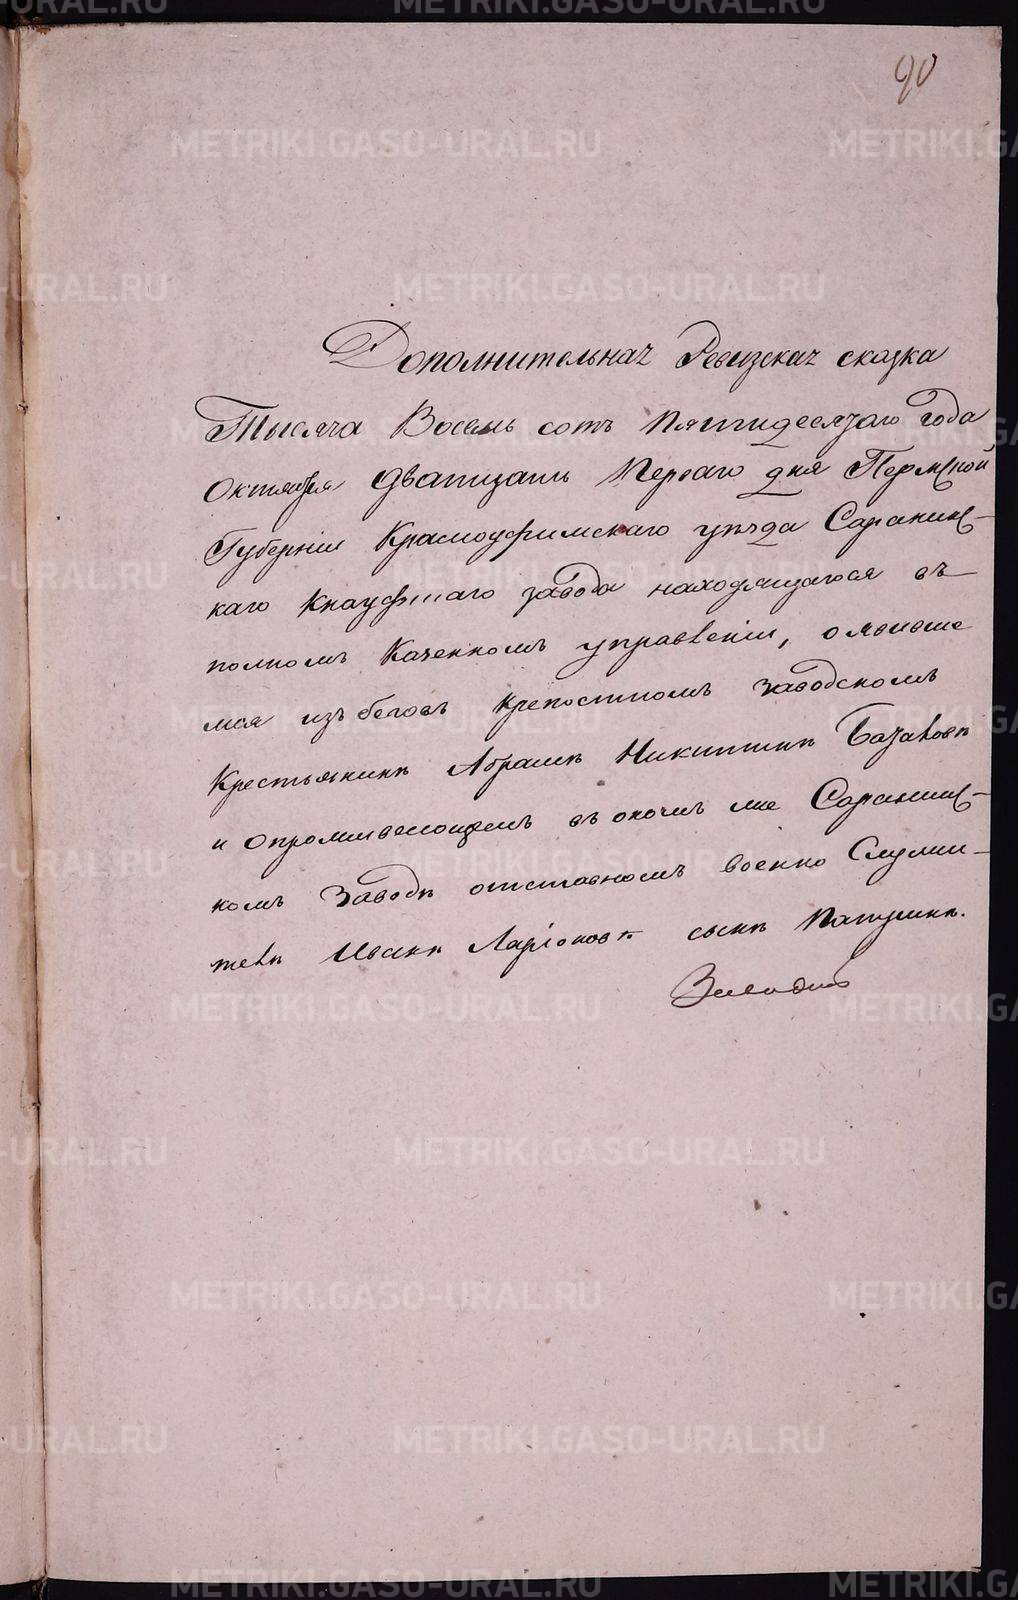 90
Дополнительная Ревизская сказка
Тысяча Восемь сотъ Пятидесятаго года
Октября дватцать Перваго дня Пермской
Губерніи Красноуфимскаго уѣзда Саранинс-
каго Кнауфскаго завода находящагося въ
полномъ Казенномъ управленіи, о явивше
мся изъ беговъ крепостномъ заводскомъ
Крестьянинѣ Абрамѣ Никитинѣ
и опроживающемъ въ ономъ же Саранинс-
комъ Заводѣ отставномъ военно Служи-
телѣ Иванѣ Ларіоновѣ сынѣ
METRIKI.GASO-URAL.RU